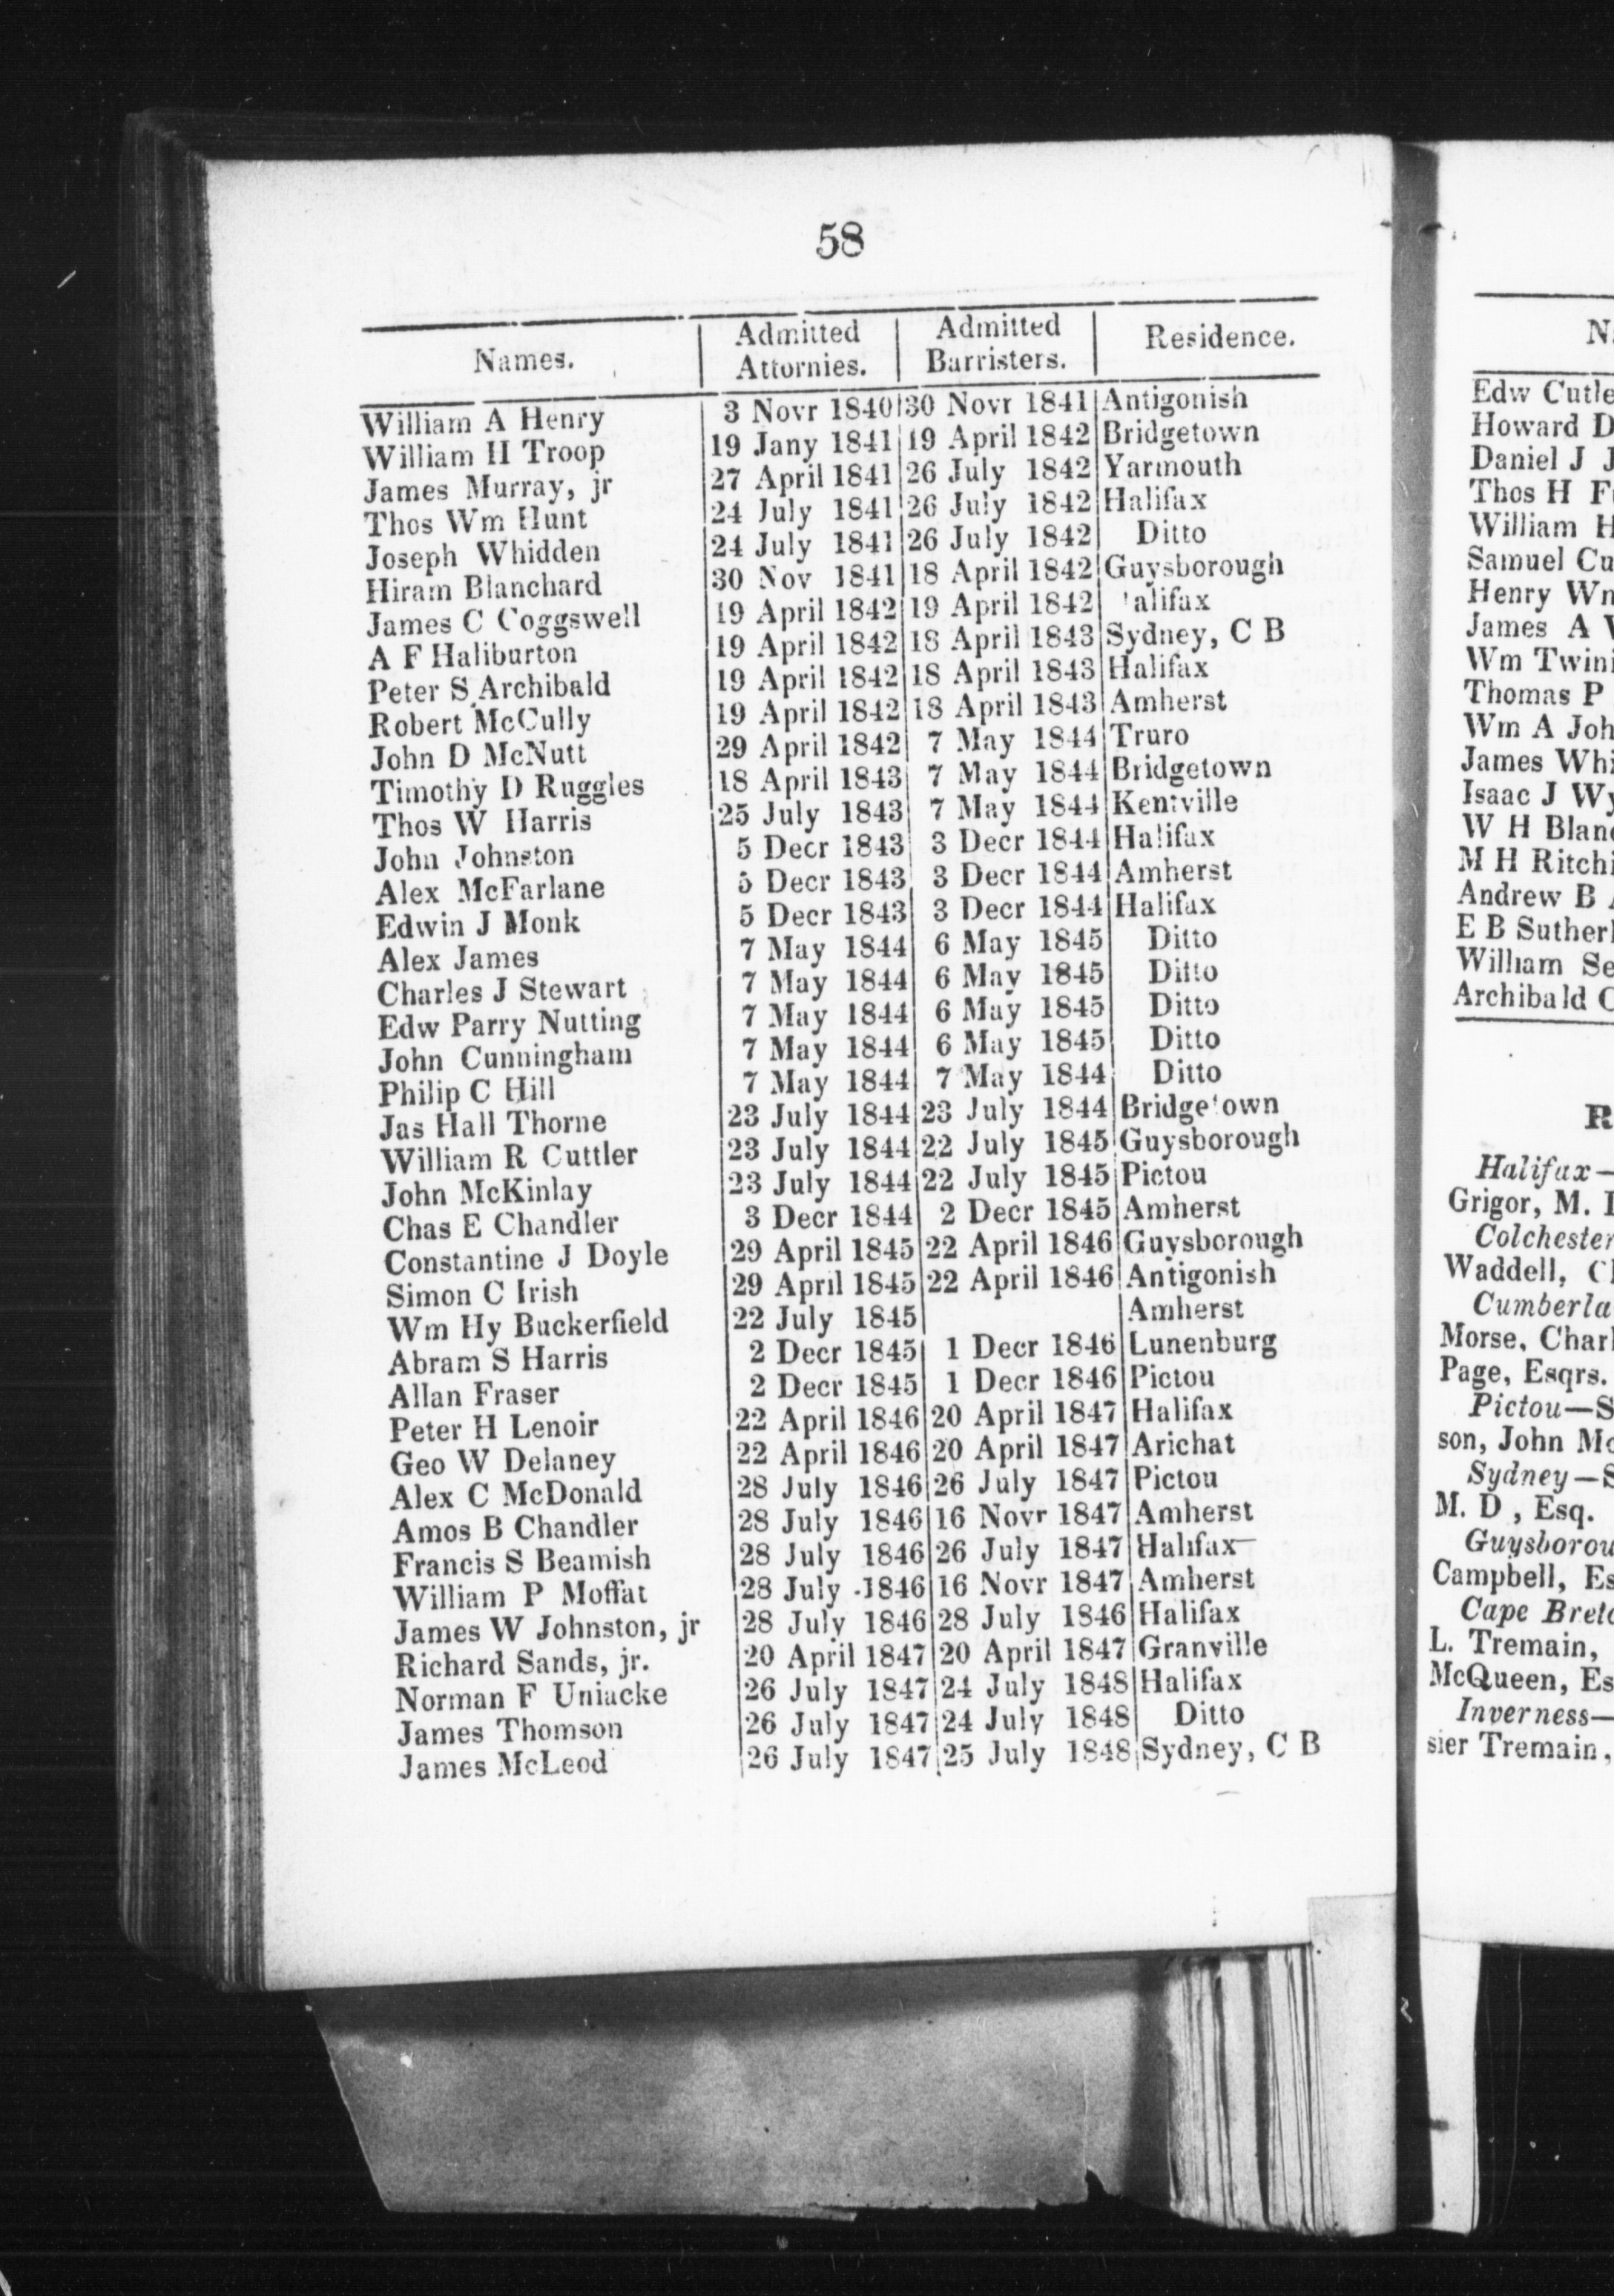 58
Names. Admitted Attornies. Admitted Barristers. Residence.
William A Henry 3 Novr 1840 30 Novr 1841 Antigonish
William H Troop 19 Jany 1841 19 April 1842 Bridgetown
James Murray, jr 27 April 1841 26 July 1842 Yarmouth
Thos Wm Hunt 24 July 1841 26 July 1842 Halifax
Joseph Whidden 24 July 1841 26 July 1842 Ditto
Hiram Blanchard 30 Nov 1841 18 April 1842 Guysborough
James C Coggswell 19 April 1842 19 April 1842 alifax
A F Haliburton 19 April 1842 18 April 1843 Sydney, C B
Peter S Archibald 19 April 1842 18 April 1843 Halifax
Robert McCully 19 April 1842 18 April 1843 Amherst
John D McNutt 29 April 1842 7 May 1844 Truro
Timothy D Ruggles 18 April 1843 7 May 1844 Bridgetown
Thos W Harris 25 July 1843 7 May 1844 Kentville
John Johnston 5 Decr 1843 3 Decr 1844 Halifax
Alex McFarlane 5 Decr 1843 3 Decr 1844 Amherst
Edwin J Monk 5 Decr 1843 3 Decr 1844 Halifax
Alex James 7 May 1844 6 May 1845 Ditto
Charles J Stewart 7 May 1844 6 May 1845 Ditto
Edw Parry Nutting 7 May 1844 6 May 1845 Ditto
John Cunningham 7 May 1844 6 May 1845 Ditto
Philip C Hill 7 May 1844 7 May 1844 Ditto
Jas Hall Thorne 23 July 1844 23 July 1844 Bridge'own
William R Cuttler 23 July 1844 22 July 1845 Guysborough
John McKinlay 23 July 1844 22 July 1845 Pictou
Chas E Chandler 3 Decr 1844 2 Decr 1845 Amherst
Constantine J Doyle 29 April 1845 22 April 1846 Guysborough
Simon C Irish 29 April 1845 22 April 1846 Antigonish
Wm Hy Buckerfield 22 July 1845 Amherst
Abram S Harris 2 Decr 1845 1 Decr 1846 Lunenburg
Allan Fraser 2 Decr 1845 1 Decr 1846 Pictou
Peter H Lenoir 22 April 1846 20 April 1847 Halifax
Geo W Delaney 22 April 1846 20 April 1847 Arichat
Alex C McDonald 28 July 1846 26 July 1847 Pictou
Amos B Chandler 28 July 1846 16 Novr 1847 Amherst
Francis S Beamish 28 July 1846 26 July 1847 Halifax
William P Moffat 28 July 1846 16 Novr 1847 Amherst
James W Johnston, jr 28 July 1846 28 July 1846 Halifax
Richard Sands, jr. 20 April 1847 20 April 1847 Granville
Norman F Uniacke 26 July 1847 24 July 1848 Halifax
James Thomson 26 July 1847 24 July 1848 Ditto
James McLeod 26 July 1847 25 July 1848 Sydney, C B
Edw Cutle
Howard D
Daniel J J
Thos H F
William H
Samuel Cu
Henry Wm
James A
Wm Twini
Thomas P
Wm A Joh
James Whi
Isaac J Wy
W H Blan
M H Ritchi
Andrew B A
E B Sutherl
William Se
Archibald C
R
Halifax—
Grigor, M. D
Colchester
Waddell, C
Cumberla
Morse, Charl
Page, Esqrs.
Pictou—S
son, John Mc
Sydney—S
M. D , Esq.
Guysborou
Campbell, Es
Cape Breto
L. Tremain,
McQueen, Es
Inverness—
sier Tremain,